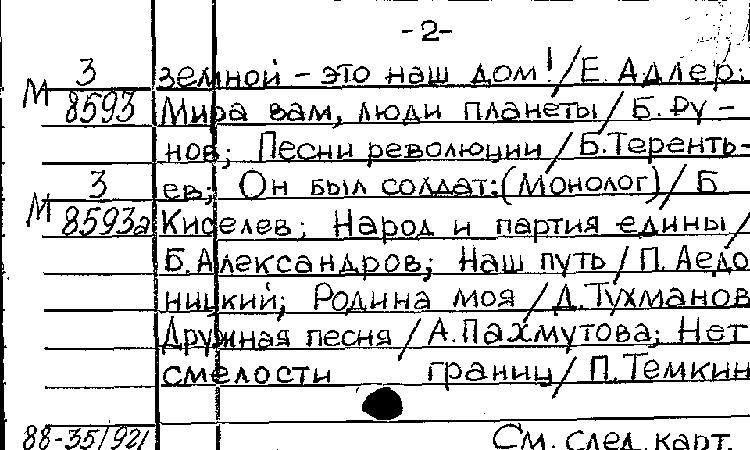 -2-
М 3/8593
земной - это наш дом! / Е. Адлер;
Мира вам, люди планеты / Б. Ру-
нов; Песни революции / Б. Теренть-
М 3/8593а
ев; Он был солдат: (Монолог) / Б.
Киселев; Народ и партия едины /
Б. Александров; Наш путь / П. Аедо
ницкий; Родина моя / Д. Тухманов
Дружная песня / А. Пахмутова; Нет
смелости границ / П. Темкин
88-35/921
См. след. карт.